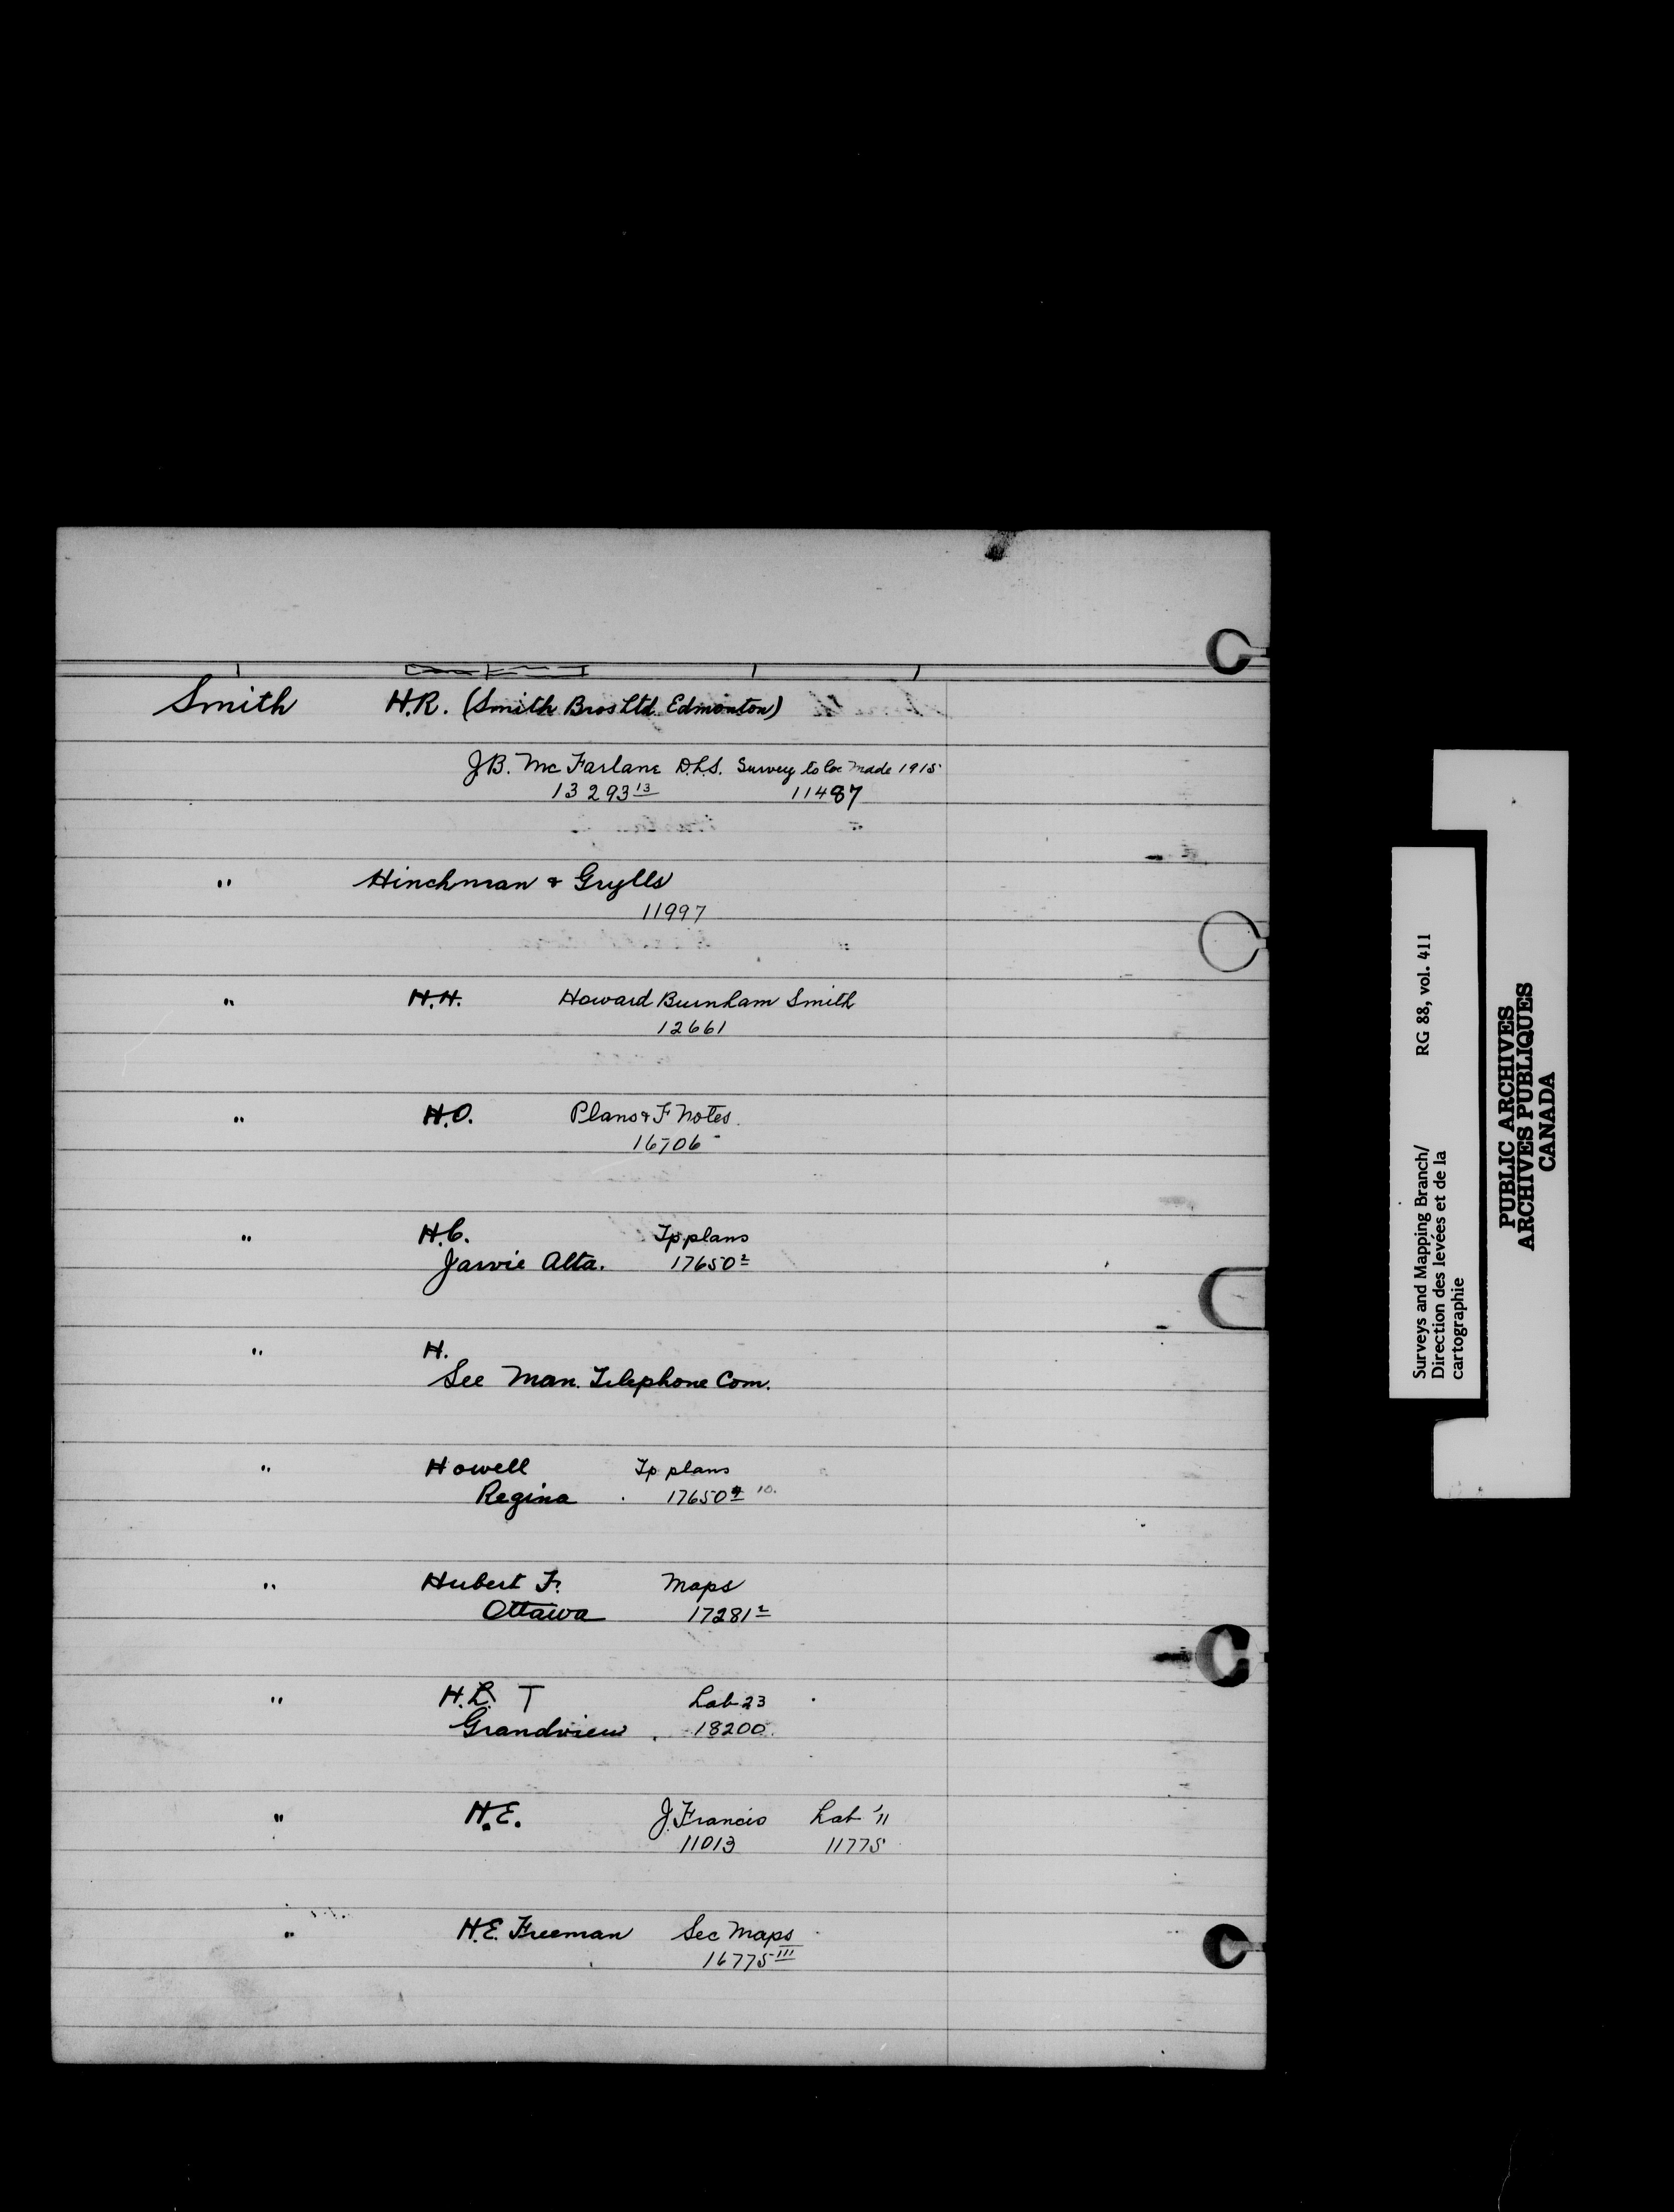 Smith H.R. (Smith Bros Ltd. Edmonton)
J.B. McFarlane D.L.S. Survey to be made 1915
13293 13 11487
" Hinchman & Grylls
11997
" H.H. Howard Burnham Smith
12661
" H.O. Plans & F Notes.
16706
" H.C. Tp plans
Jarvie Alta. 17650 2
" H.
See Man. Telephone Com.
" Howell Tp plans
Regina . 17650 10.
" Hubert F. Maps
Ottawa 17281 2
" H. T Lab 23
Grandview . 18200
" H.E. J. Francis Lab '11
11013 11775
" H.E. Freeman Sec Maps
16775 III
Surveys and Mapping Branch/ RG 88, vol. 411
Direction des levées et de la
cartographie
PUBLIC ARCHIVES
ARCHIVES PUBLIQUES
CANADA